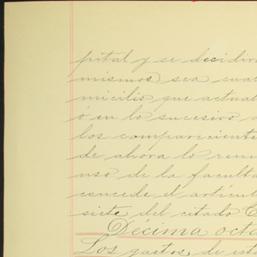 pital y se decidirá
mismos sea cual
micilio que actual
ó en lo sucesivo
los compareciente
de ahora lo renun
uso de la faculta
concede el artícul
siete del citado C
Décima octa
Los gastos, de est